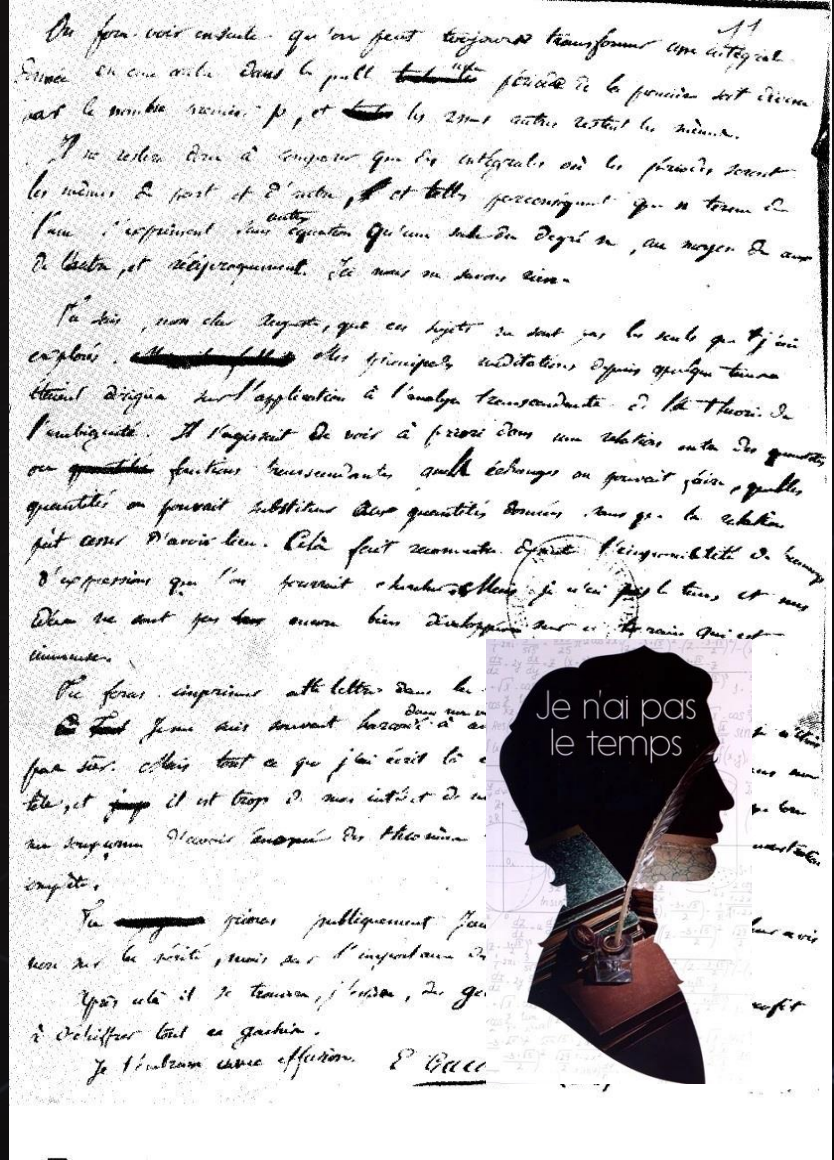 11
On fera voir ensuite qu'on peut toujours transformer une intégrale
donnée en une autre dans laquelle une période de la première soit divisée
par le nombre premier p, et les autres restent les mêmes.
Il ne restera donc à comparer que des intégrales où les périodes seront
les mêmes de part et d'autre, et telles parconséquent que n termes de
l'une s'expriment sans autre équation qu'une seule du degré n, au moyen de ceux
de l'autre, et réciproquement. Ici nous ne savons rien.
Tu sais, mon cher Auguste, que ces sujets ne sont pas les seuls que j'aie
explorés. Mes principales méditations depuis quelque tems
étaient dirigées sur l'application à l'analyse transcendante de la théorie de
l'ambiguité. Il s'agissait de voir à priori dans une relation entre des quantités
ou fonctions transcendantes quels échanges on pouvait faire, quelles
quantités on pouvait substituer aux quantités données sans que la relation
put cesser d'avoir lieu. Cela fait reconnaitre l'impossibilité de beaucoup
d'expressions que l'on pourrait chercher. Mais je n'ai pas le tems et mes
idées ne sont pas encore bien développées sur ce terrain qui est
immense.
Tu feras imprimer cette lettre dans la
Je me suis souvent hasardé dans ma v à
pas sûr. Mais tout ce que j'ai écrit là
tête, et il est trop de mon intérêt de
me soupçonne d'avoir énoncé des théorèmes
complète.
Tu prieras publiquement
non sur la vérité, mais sur l'importance des
Après cela il se trouvera, j'espère, des
à déchiffrer tout ce gachis.
Je t'embrasse avec effusion. E Galo
Je n'ai pas
le temps